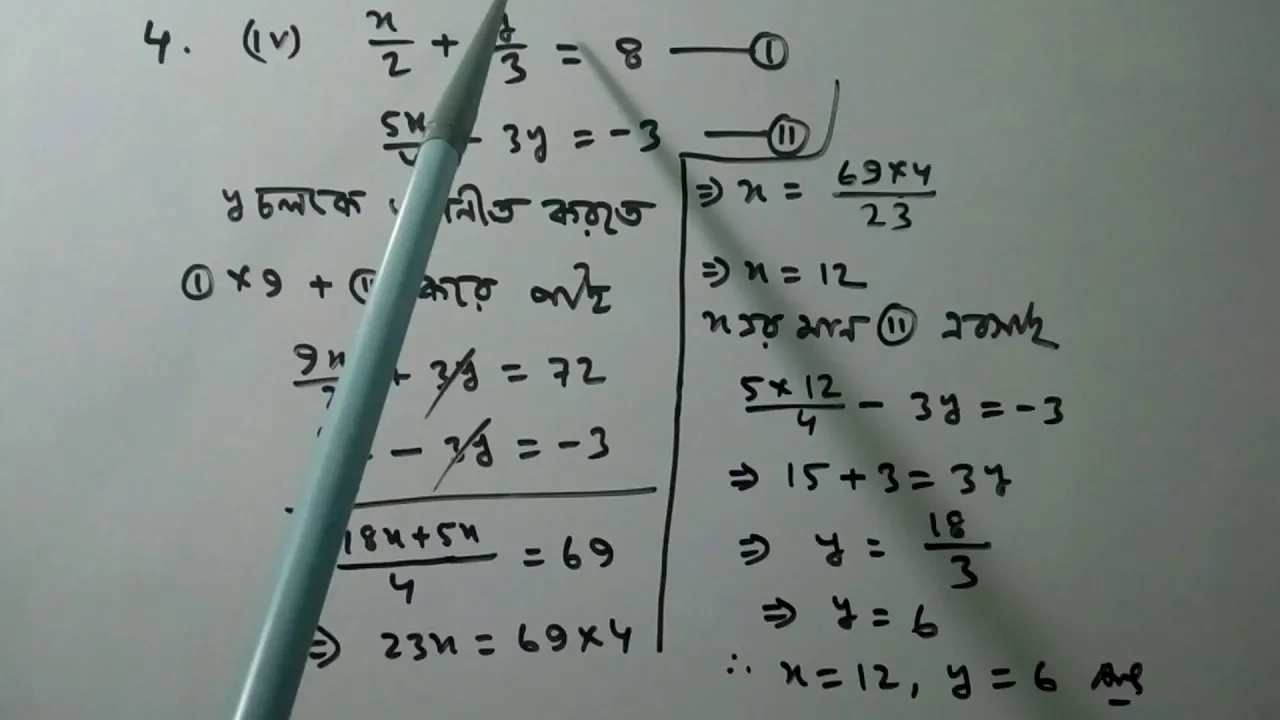 4. (iv) x/2 + y/3 = 8 —— ①
5x/4 - 3y = -3 —— ②
y চলকে করতে
① × 9 + ② করে পাই
9x/2 + 3y = 72
- 3y = -3
18x+5x/4 = 69
⇒ 23x = 69×4
⇒ x = 69×4/23
⇒ x = 12
x এর মান ⑪ বসাই
5×12/4 - 3y = -3
⇒ 15 + 3 = 3y
⇒ y = 18/3
⇒ y = 6
∴ x = 12, y = 6 Ans